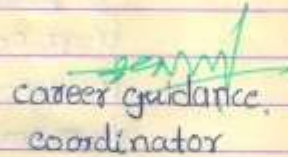 career guidance.
coordinator